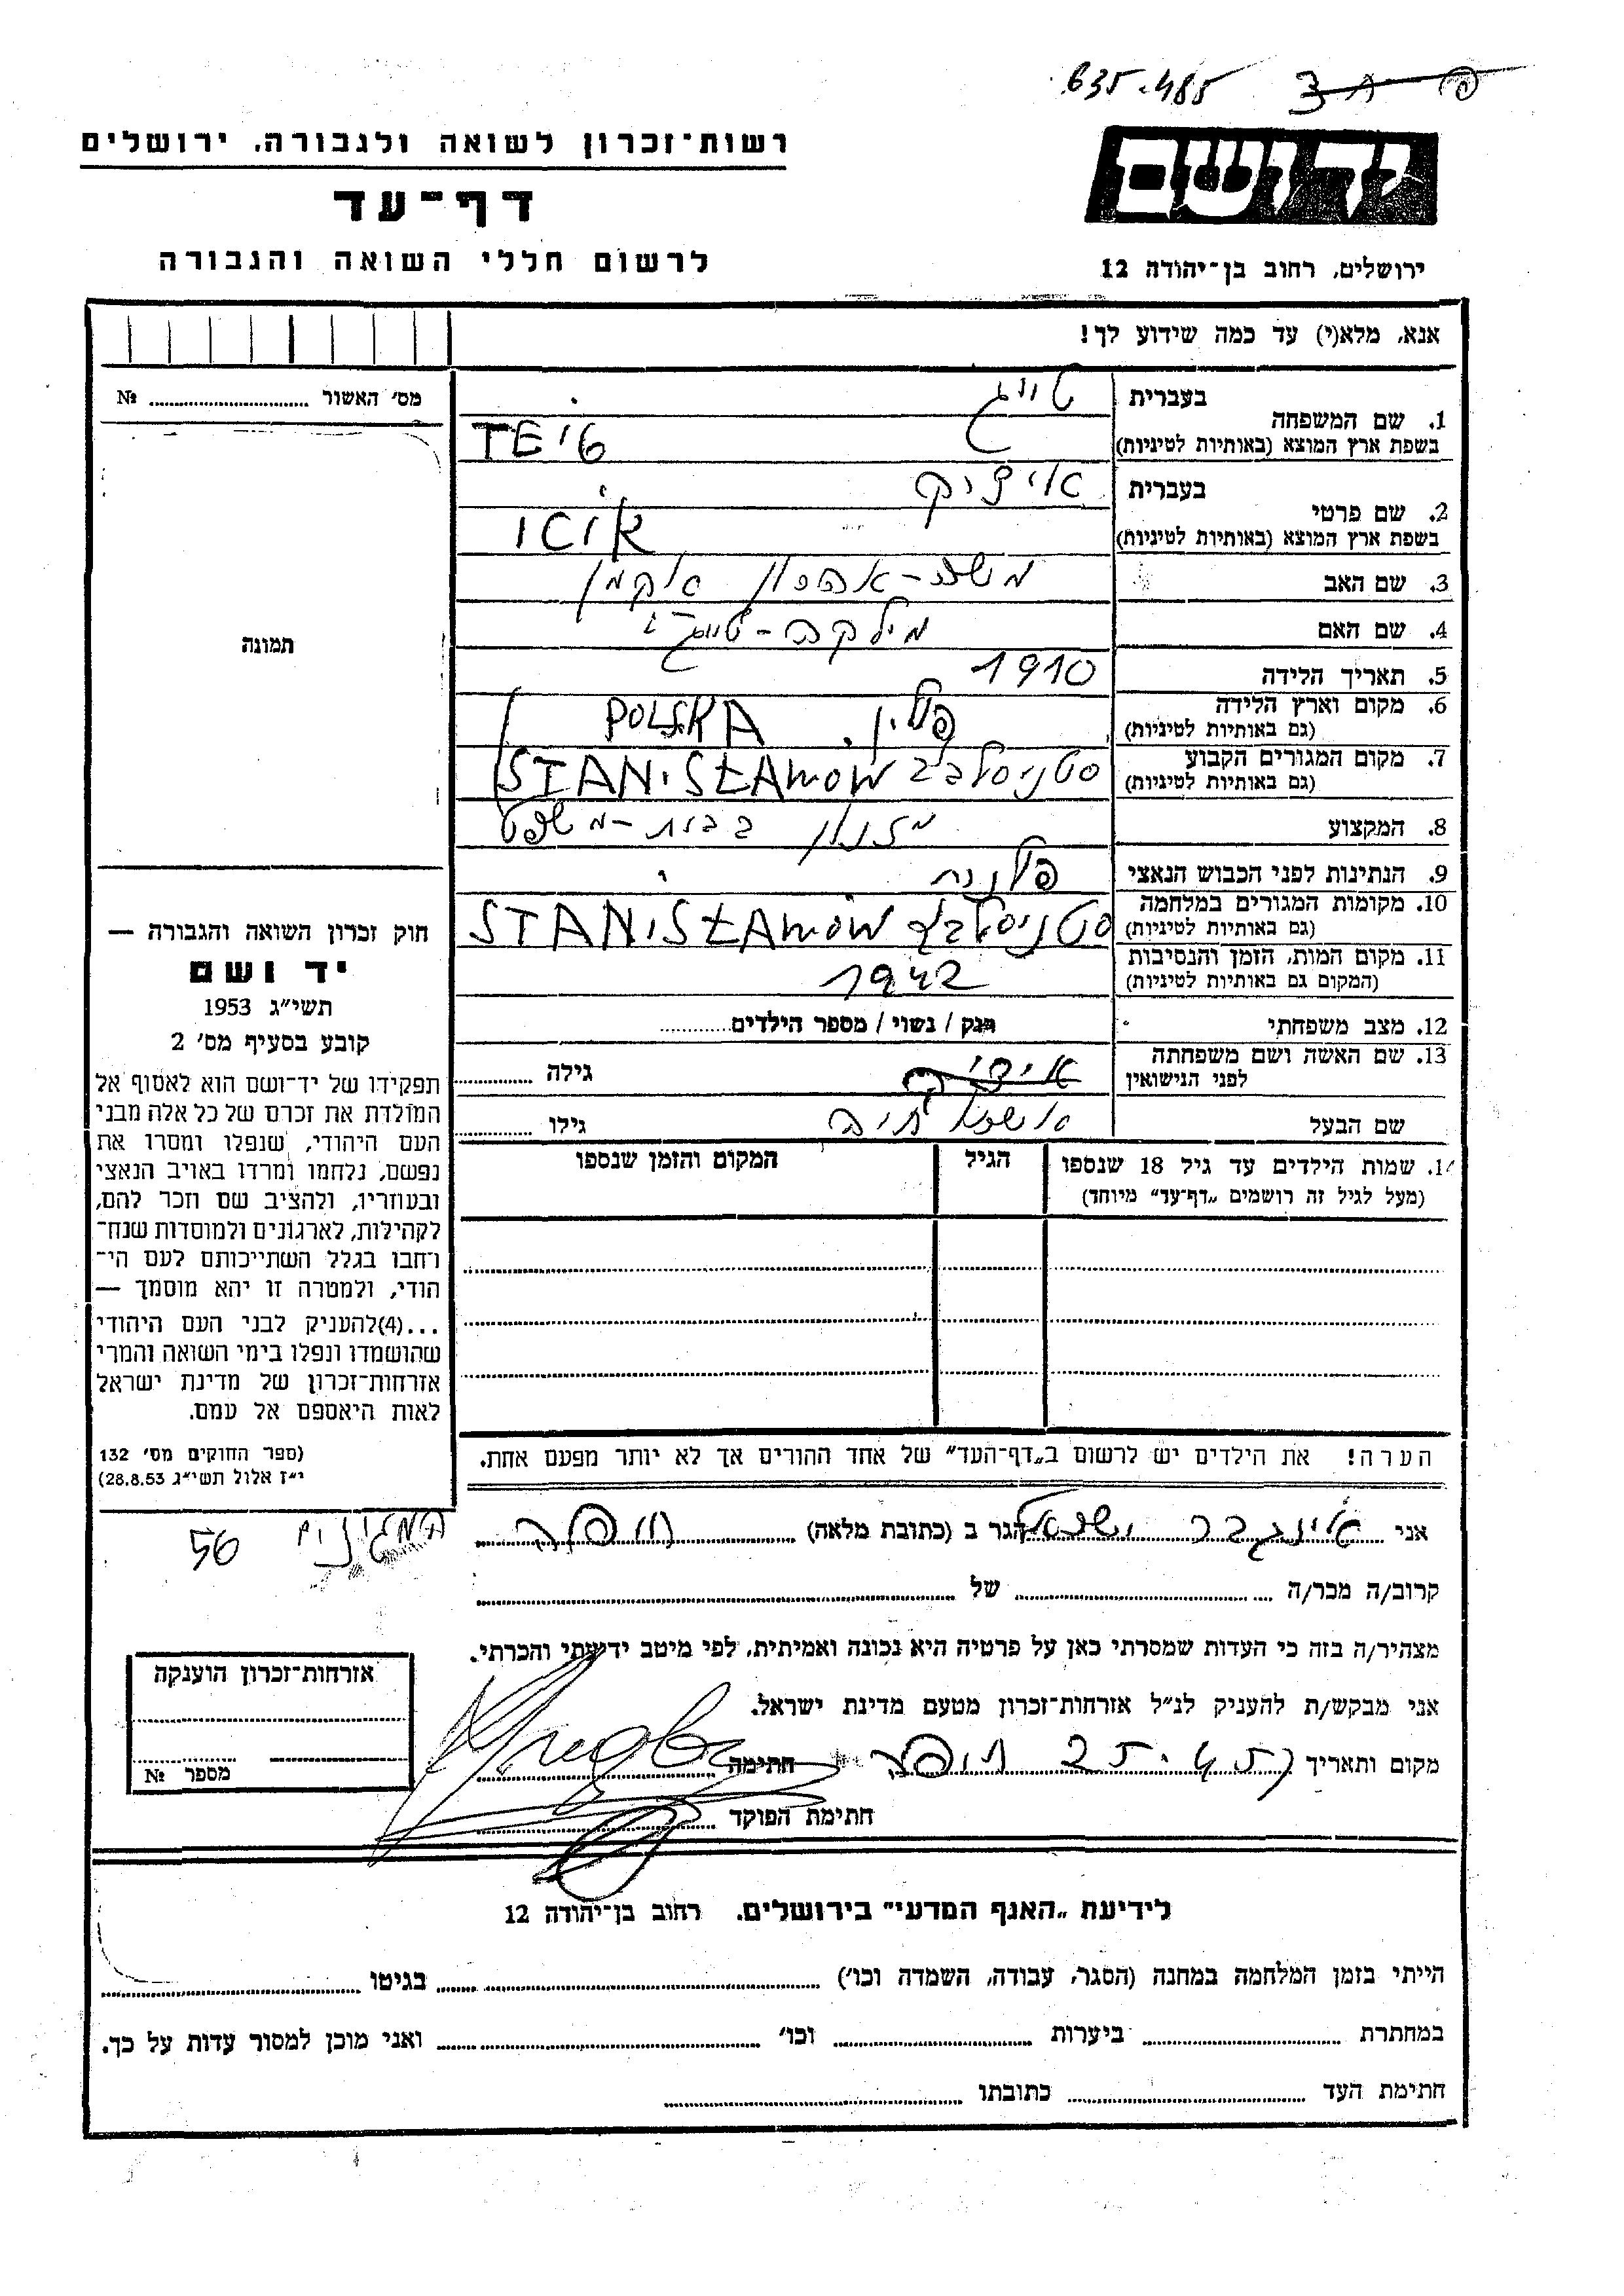 635-485
רשות־זכרון לשואה ולגבורה, ירושלים
דף־עד
לרשום חללי השואה והגבורה
יד ושם
ירושלים, רחוב בן־יהודה 12
אנא, מלא(י) עד כמה שידוע לך!
מס׳ האשור № 
תמונה
1. שם המשפחה
בעברית
טייג
בשפת ארץ המוצא (באותיות לטיניות)
TEIG
2. שם פרטי
בעברית
איציק
בשפת ארץ המוצא (באותיות לטיניות)
ICIK
3. שם האב
משה-אהרון
4. שם האם
מילקה-טייג
5. תאריך הלידה
1910
6. מקום וארץ הלידה
(גם באותיות לטיניות)
פולין. POLSKA
7. מקום המגורים הקבוע
(גם באותיות לטיניות)
סטניסלבב STANISŁAWOW
8. המקצוע
בבית-משפט
9. הנתינות לפני הכבוש הנאצי
פולנית
10. מקומות המגורים במלחמה
(גם באותיות לטיניות)
סטניסלבב STANISŁAWOW
11. מקום המות, הזמן והנסיבות
(המקום גם באותיות לטיניות)
1942
12. מצב משפחתי
רוק / נשוי / מספר הילדים
13. שם האשה ושם משפחתה
לפני הנישואין
גילה
שם הבעל
גילו
14. שמות הילדים עד גיל 18 שנספו
(מעל לגיל זה רושמים „דף־עד״ מיוחד)
הגיל
המקום והזמן שנספו
חוק זכרון השואה והגבורה —
יד ושם
תשי״ג 1953
קובע בסעיף מס׳ 2
תפקידו של יד־ושם הוא לאסוף אל
המולדת את זכרם של כל אלה מבני
העם היהודי, שנפלו ומסרו את
נפשם, נלחמו ומרדו באויב הנאצי
ובעוזריו, ולהציב שם וזכר להם,
לקהילות, לארגונים ולמוסדות שנח־
רחבו בגלל השתייכותם לעם הי־
הודי, ולמטרה זו יהא מוסמך —
...(4)להעניק לבני העם היהודי
שהושמדו ונפלו בימי השואה והמרי
אזרחות־זכרון של מדינת ישראל
לאות היאספם אל עמם.
(ספר החוקים מס׳ 132
י״ז אלול תשי״ג 28.8.53)
הערה! את הילדים יש לרשום ב„דף־העד״ של אחד ההורים אך לא יותר מפעם אחת.
אני אינגבר ישראל הגר ב (כתובת מלאה) חיפה
המגינים 56
קרוב/ה מכר/ה של
מצהיר/ה בזה כי העדות שמסרתי כאן על פרטיה היא נכונה ואמיתית, לפי מיטב ידיעתי והכרתי.
אני מבקש/ת להעניק לנ״ל אזרחות־זכרון מטעם מדינת ישראל.
מקום ותאריך חיפה חתימה
חתימת הפוקד
אזרחות־זכרון הוענקה
מספר №
לידיעת „האגף המדעי״ בירושלים, רחוב בן־יהודה 12
הייתי בזמן המלחמה במחנה (הסגר, עבודה, השמדה וכו׳) בגיטו
במחתרת ביערות וכו׳ ואני מוכן למסור עדות על כך.
חתימת העד כתובתו